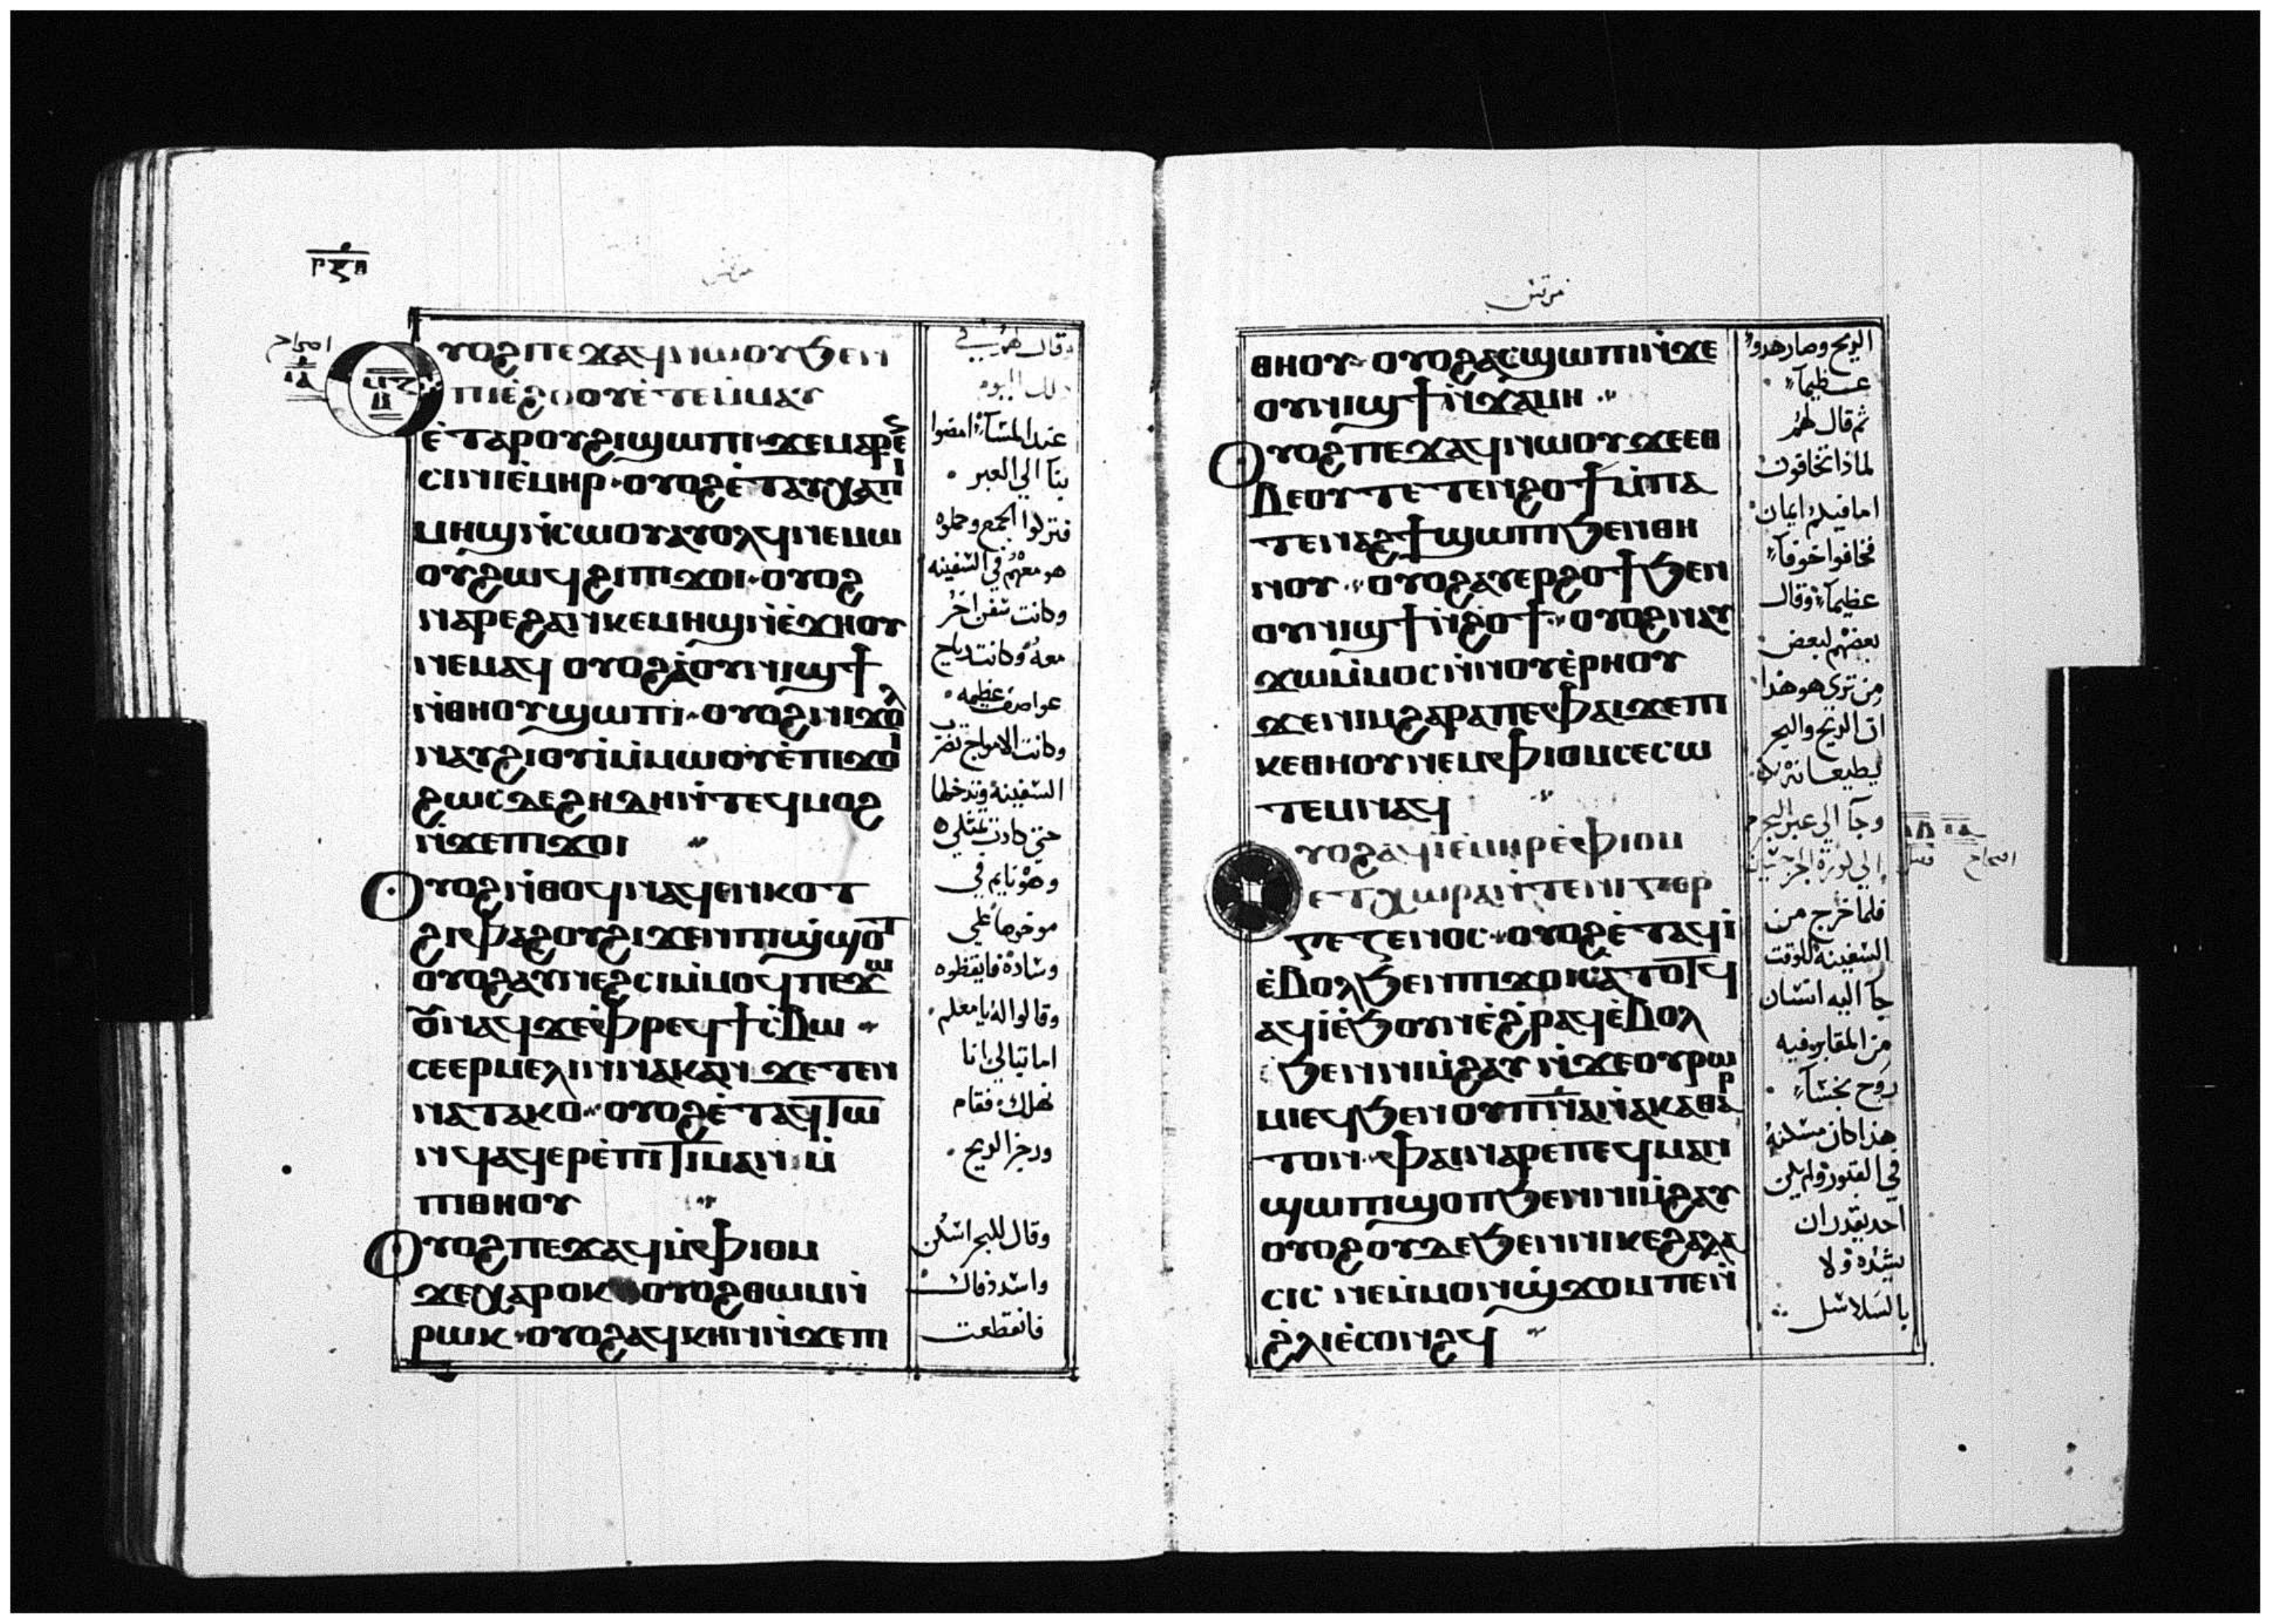 ⲩⲟϩ ⲡⲉϫⲁϥ ⲛⲱⲟⲩ ϧⲉⲛ
ⲡⲓⲉ̀ϩⲟⲟⲩ ⲉ̀ⲧⲉⲙ̀ⲙⲁⲩ
ⲉ̀ⲧⲁ ⲣⲟⲩϩⲓ ϣⲱⲡⲓ ϫⲉ ⲙⲁⲣⲉ
ⲥⲓⲛⲓ ⲉ̀ⲙⲏⲣ ⲟⲩⲟϩ ⲉ̀ⲧⲁⲩⲭⲁ ⲡⲓ
ⲙⲏϣ ⲛ̀ⲥⲱⲟⲩ ⲁⲩⲟⲗϥ ⲛⲉⲙⲱ
ⲟⲩ ϩⲱϥ ϩⲓ ⲡⲓϫⲟⲓ ⲟⲩⲟϩ
ⲛⲁⲣⲉ ϩⲁⲛⲕⲉⲙⲏϣ ⲛ̀ⲉ̀ϫⲏⲟⲩ
ⲛⲉⲙⲁϥ ⲟⲩⲟϩ ⲁ̀ ⲟⲩⲛⲓϣϯ
ⲛ̀ⲑⲏⲟⲩ ϣⲱⲡⲓ ⲟⲩⲟϩ ⲛⲓϫⲟⲗ
ⲛⲁⲩϩⲓⲟⲩⲓ̀ ⲙ̀ⲙⲱⲟⲩ ⲉ̀ⲡⲓϫⲟⲓ
ϩⲱⲥⲇⲉ ϩⲏⲇⲏ ⲛ̀ⲧⲉϥⲙⲟϩ
ⲛ̀ϫⲉ ⲡⲓϫⲟⲓ
Ⲟⲩⲟϩ ⲛ̀ⲑⲟϥ ⲛⲁϥⲉⲛⲕⲟⲧ
ϩⲓ ⲫⲁϩⲟⲩ ϩⲓϫⲉⲛ ⲡⲓϣ̀ϣⲟⲧ
ⲟⲩⲟϩ ⲁⲩⲛⲉϩⲥⲓ ⲙ̀ⲙⲟϥ ⲡⲉϫⲱ
ⲟⲩ ⲛⲁϥ ϫⲉ ⲫⲣⲉϥϯⲥ̀ⲃⲱ
ⲥⲉⲉⲣⲙⲉⲗⲓⲛ ⲛⲁⲕ ⲁⲛ ϫⲉ ⲧⲉⲛ
ⲛⲁⲧⲁⲕⲟ ⲟⲩⲟϩ ⲉ̀ⲧⲁϥⲧⲱ
ⲛϥ ⲁϥⲉⲣⲉ̀ⲡⲓⲧⲓⲙⲁⲛ ⲙ̀
ⲡⲓⲑⲏⲟⲩ
Ⲟⲩⲟϩ ⲡⲉϫⲁϥ ⲙ̀ⲫⲓⲟⲙ
ϫⲉ ⲭⲁⲣⲟⲕ ⲟⲩⲟϩ ⲑⲱⲙ ⲛ̀
ⲣⲱⲕ ⲟⲩⲟϩ ⲁϥⲕⲏⲛ ⲛ̀ϫⲉ ⲡⲓ
عند المسآء امضوا
بنا الي العبر
فتركوا الجمع وحملوه
هو معهم في السفينه
وكانت سفن اخر
معه وكانت رياح
عواصف عظيمه
وكانت الامواج تضرب
السفينة وتدخلها
حتي كادت تمتلي
وهو نايم في
موخرها علي
وساده فايقظوه
وقالوا له يا معلم
اما تبالي انا
نهلك فقام
وزجر الريح
وقال للبحر اسكن
واسدد فاك
فانقطعت
مرقس
ⲑⲏⲟⲩ ⲟⲩⲟϩ ⲁⲥϣⲱⲡⲓ ⲛ̀ϫⲉ
ⲟⲩⲛⲓϣϯ ⲛ̀ϫⲁⲙⲏ
Ⲟⲩⲟϩ ⲡⲉϫⲁϥ ⲛⲱⲟⲩ ϫⲉ ⲉⲑ
ⲃⲉⲟⲩ ⲧⲉⲧⲉⲛϩⲟϯ ⲙ̀ⲡⲁ
ⲧⲉ ⲛⲁϩϯ ϣⲱⲡⲓ ϧⲉⲛ ⲑⲏ
ⲛⲟⲩ ⲟⲩⲟϩ ⲁⲩⲉⲣϩⲟϯ ϧⲉⲛ
ⲟⲩⲛⲓϣϯ ⲛ̀ϩⲟϯ ⲟⲩⲟϩ ⲛⲁⲩ
ϫⲱ ⲙ̀ⲙⲟⲥ ⲛ̀ⲛⲟⲩⲉ̀ⲣⲏⲟⲩ
ϫⲉ ⲛⲓⲙ ϩⲁⲣⲁ ⲡⲉ ⲫⲁⲓ ϫⲉ ⲡⲓ
ⲕⲉⲑⲏⲟⲩ ⲛⲉⲙ ⲫⲓⲟⲙ ⲥⲉⲥⲱ
ⲧⲉⲙ ⲛⲁϥ
ⲩⲟϩ ⲁϥⲓ̀ ⲉ̀ⲙⲏⲣ ⲉ̀ⲫⲓⲟⲙ
ⲉ̀ⲧⲭⲱⲣⲁ ⲛ̀ⲧⲉ ⲛⲓⲅⲉⲣ
ⲅⲉⲥⲉⲛⲟⲥ ⲟⲩⲟϩ ⲉ̀ⲧⲁϥⲓ̀
ⲉ̀ⲃⲟⲗ ϧⲉⲛ ⲡⲓϫⲟⲓ ⲥⲁⲧⲟⲧϥ
ⲁϥⲓ̀ ⲉ̀ϧⲟⲩⲛ ⲉ̀ϩ̀ⲣⲁϥ ⲉ̀ⲃⲟⲗ
ϧⲉⲛ ⲛⲓⲙ̀ϩⲁⲩ ⲛ̀ϫⲉ ⲟⲩⲣⲱ
ⲙⲓ ⲉϥϧⲉⲛ ⲟⲩⲡⲛ̅ⲁ ⲛ̀ⲁⲕⲁⲑⲁⲣ
ⲧⲟⲛ ⲫⲁⲓ ⲛⲁⲣⲉ ⲡⲉϥⲙⲁⲛ
ϣⲱⲡⲓ ϣⲟⲡ ϧⲉⲛ ⲛⲓⲙ̀ϩⲁⲩ
ⲟⲩⲟϩ ⲟⲩⲇⲉ ϧⲉⲛ ⲛⲓⲕⲉϩⲁⲗⲩ
ⲥⲓⲥ ⲛⲉⲙ̀ⲙⲟⲛ ϣ̀ϫⲟⲙ ⲡⲉ ⲛ̀
ϩ̀ⲗⲓ ⲉ̀ⲥⲟⲛϩϥ
الريح وصار هدوا
عظيمآ
ثم قال لهم
لماذا تخافون
اما فيكم ايمان
فخافوا خوفآ
عظيمآ وقال
بعضهم لبعض
من تري هو هذا
ان الريح والبحر
يطيعانه
وجآ الي عبر البحر
فلما خرج من
السفينة للوقت
جآ اليه انسان
من المقابر فيه
روح نجسآ
هذا كان مسكنه
في القبور ولم يكن
احد يقدر ان
يشده ولا
بالسلاسل